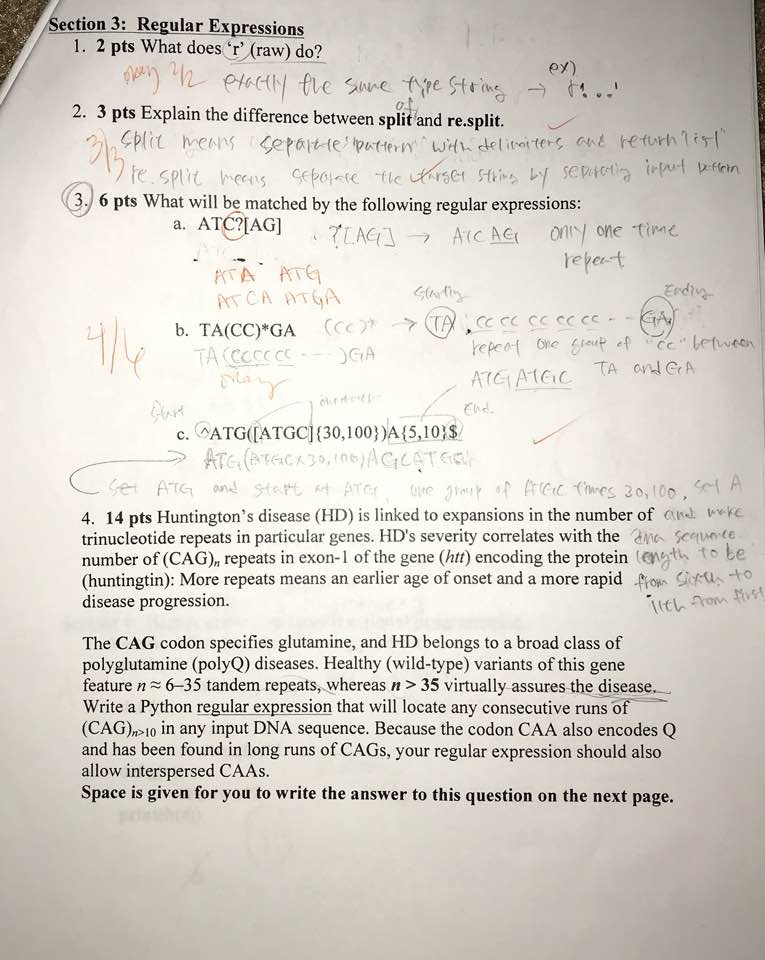 Section 3: Regular Expressions
1. 2 pts What does 'r' (raw) do?
okay 2/2 exactly the same type string → ex) r'...'
of
2. 3 pts Explain the difference between split and re.split.
3/3 split means separate "pattern" with delimiters and return "list"
re.split means separate the target string by separating input pattern
3. 6 pts What will be matched by the following regular expressions:
a. ATC?[AG]
?[AG] → ATCAG only one time
repeat
ATA ATG
ATCA ATGA
4/6
Starting
Ending
b. TA(CC)*GA
(CC)* → TA, CC CC CC CC CC - - GA
TA(CCCCCC - - - -)GA
repeat one group of "CC" between
TA and GA
okay
ATGATGC
End
c. ^ATG([ATGC]{30,100})A{5,10}$
set ATG and start at ATG, one group of ATGC times 30,100, set A
and make
dna sequence
length to be
from sixth to
11th from first
4. 14 pts Huntington's disease (HD) is linked to expansions in the number of
trinucleotide repeats in particular genes. HD's severity correlates with the
number of (CAG)n repeats in exon-1 of the gene (htt) encoding the protein
(huntingtin): More repeats means an earlier age of onset and a more rapid
disease progression.
The CAG codon specifies glutamine, and HD belongs to a broad class of
polyglutamine (polyQ) diseases. Healthy (wild-type) variants of this gene
feature n ≈ 6–35 tandem repeats, whereas n > 35 virtually assures the disease.
Write a Python regular expression that will locate any consecutive runs of
(CAG)n>10 in any input DNA sequence. Because the codon CAA also encodes Q
and has been found in long runs of CAGs, your regular expression should also
allow interspersed CAAs.
Space is given for you to write the answer to this question on the next page.